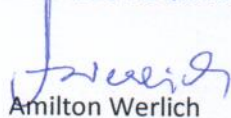 Amilton Werlich